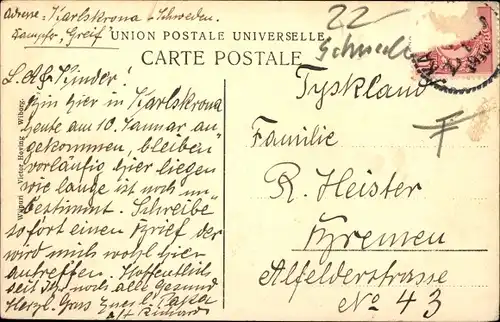 Adresse: Karlskrona - Schweden.
Dampfer "Greif"
22
Schweden
UNION POSTALE UNIVERSELLE
CARTE POSTALE
L. Kinder!
Bin hier in Karlskrona
heute am 10. Januar an,
gekommen, bleiben
vorläufig hier liegen
wie lange ist noch un,
bestimmt. Schreibe
sofort einen Brief der
wird mich wohl hier
antreffen. Hoffentlich
seid Ihr noch alle gesund
Herzl. Gruss Euer l. Papa
Wiipuri Victor Hoving Wiborg.
Tyskland
Familie
R. Heister
Bremen
Alfelderstrasse
No 43